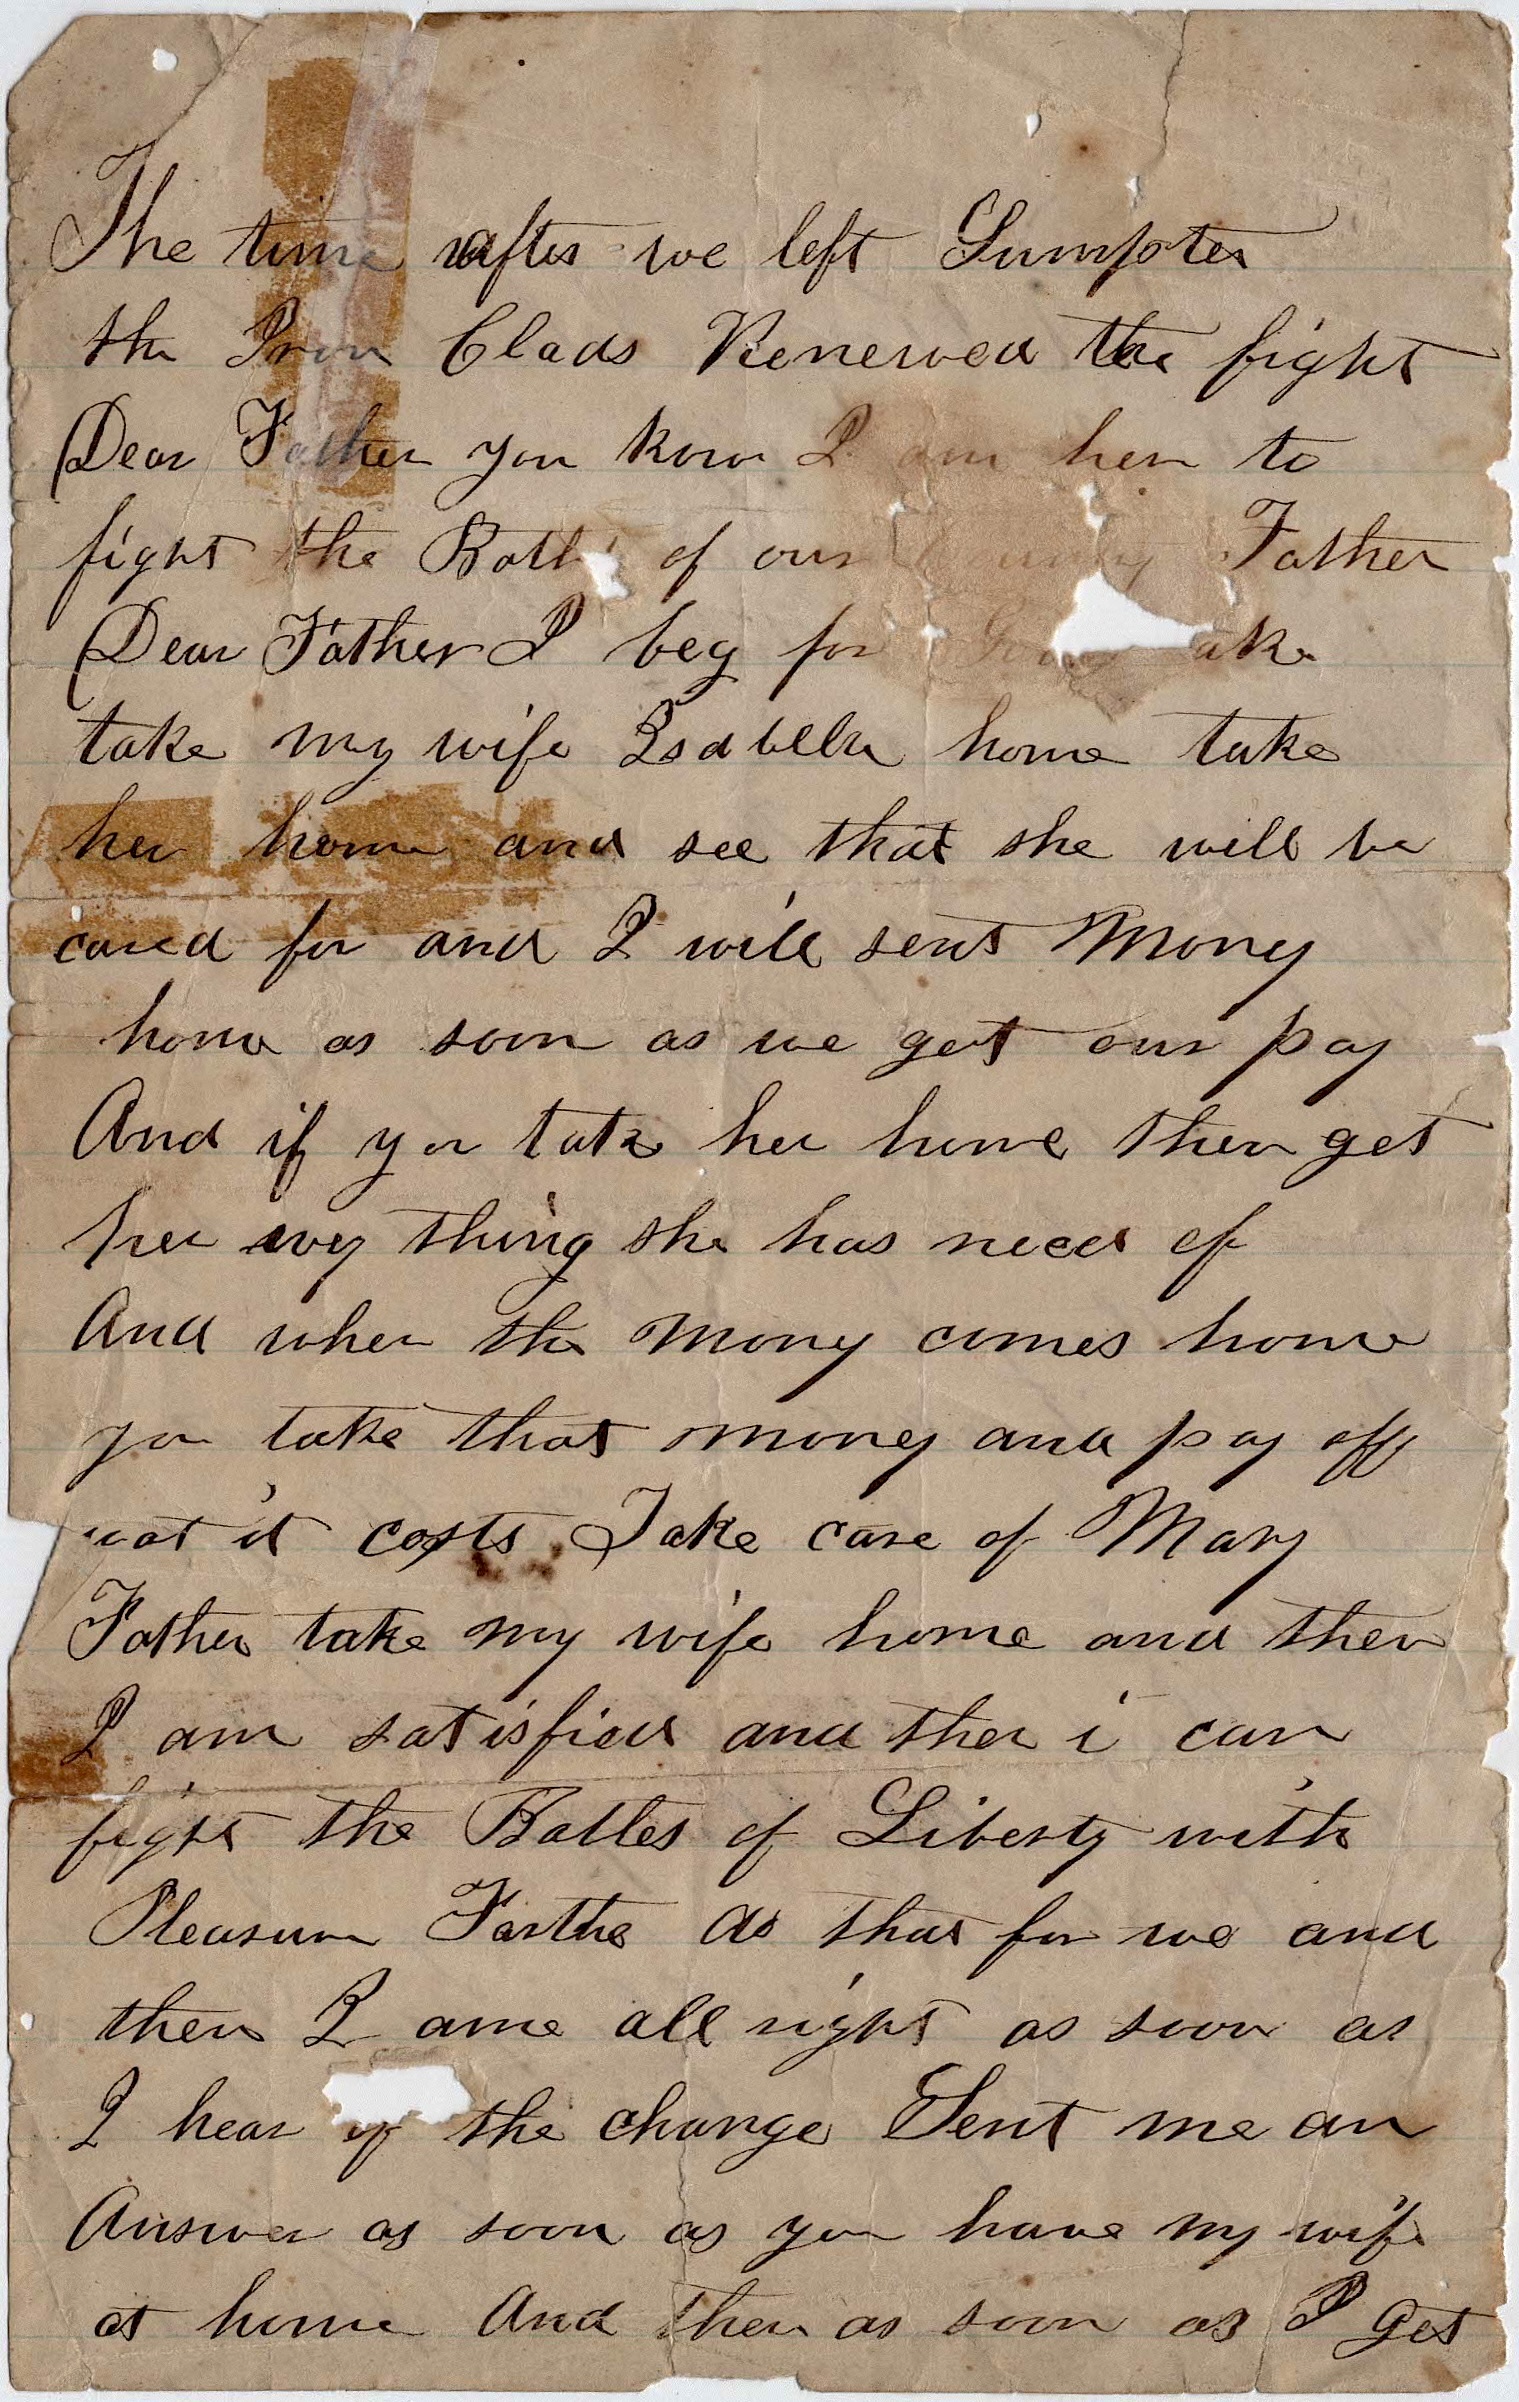 The time after we left Sumpter
the Iron Clads Renewed the fight
Dear Father you know I am her to
fight the Battl of our Father
Dear Father I beg for ake
take my wife Isabella home take
her home and see that she will be
cared for and I will sent Mony
home as soon as we get our pay
And if you take her home then get
her evry thing she has need of
And when the Mony comes home
you take that mony and pay off
wat it costs Take care of Mary
Father take my wife home and then
I am satisfied and then i can
fight the Battles of Liberty with
Pleasure Farther do that for me and
then I ame all right as soon as
I hear of the change Sent me an
Answer as soon as you have my wife
at home And then as soon as I get